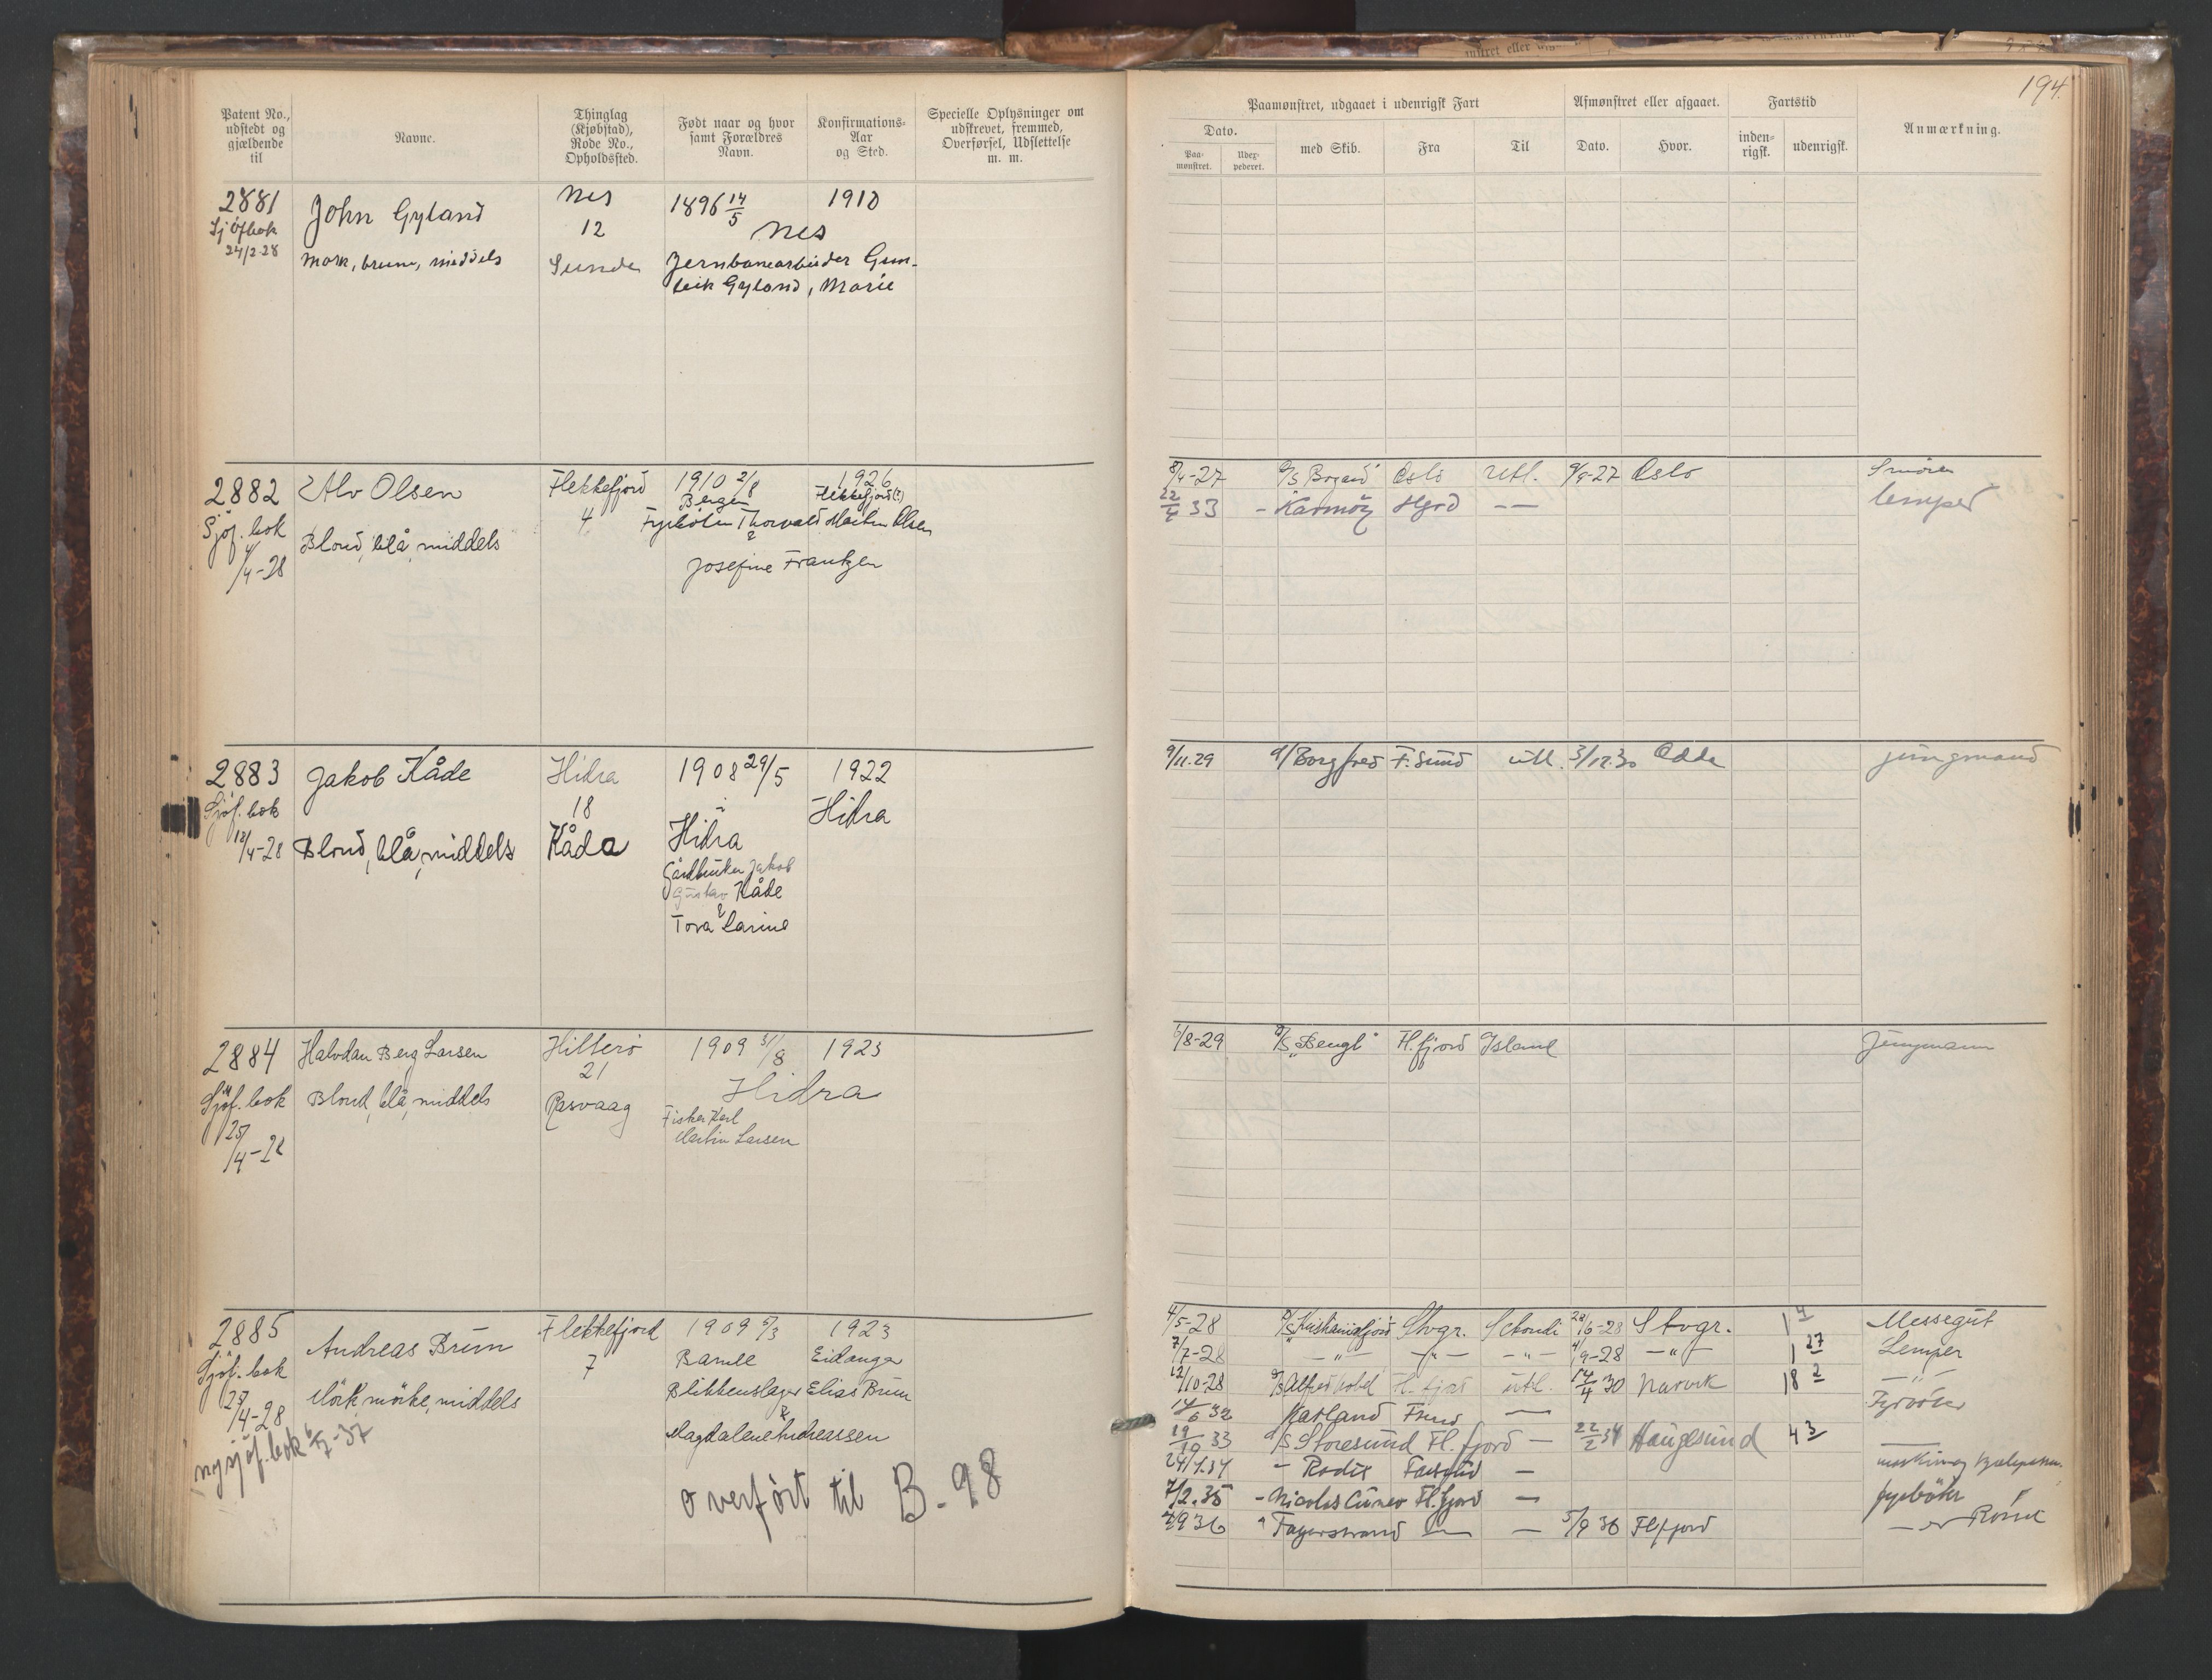 194.
Patent No., udstedt og gjældende til
Navne.
Thinglag (Kjøbstad), Rode No., Opholdssted.
Født naar og hvor samt Forældres Navn.
Konfirmations-Aar og Sted.
Specielle Oplysninger om udskrevet, fremmed, Overførsel, Udslettelse m. m.
Paamønstret, udgaaet i udenrigsk Fart
Dato.
Paa-mønstret.
Udex-pederet.
med Skib.
Fra
Til
Afmønstret eller afgaaet.
Dato.
Hvor.
Fartstid
inden-rigsk.
udenrigsk.
Anmærkning.
2881 John Gyland Nes 1896 14/5 1910
Sjöfbok 12 Nes
24/2-28 Mørk, brune, middels Sunde Jernbanearbeider Gun-
leik Gyland, Marie
2882 Alv Olsen Flekkefjord 1910 2/8 1926
Bergen Flekkefjord
Sjöf. bok 4 Fyrbøter Thorvald Martin Olsen
Blond, blå, middels &
4/4-28 Josefine Frantzen
8/4-27 Oslo utl. 9/9-27 Oslo
22/4 33 - Karmöy Hgsd — lemper
2883 Jakob Kåde Hidra 1908 29/5 1922
Sjöf. bok 18 Hidra
18/4-28 Blond, blå, middels Kåda Hidra
Gårdbruker Jakob
Gustav Kåde
&
Tora Larine
9/11.29 Borgfred F.sund utl. 3/12.30 Odda jungmand
2884 Halvdan Berg Larsen Hitterö 1909 31/8 1923
21 Hidra
Sjöf. bok Blond, blå, middels Rasvaag
Fisker Karl
25/4-28 Martin Larsen
6/8-29 D/S "Bengt" Fl.fjord Island Jungmann
2885 Andreas Brun Flekkefjord 1909 5/3 1923
Sjöf. bok 7 Bamle Eidanger
Mörk mörke, middels Blikkenslager Elias Brun
27/4-28 &
Magdalene Andreassen
ny sjöf. bok -37
overfört til B-98
4/5-28 D/S Kristianiafjord Stvgr. 28/6-28 Stvgr. 1 Messegut
7/7-28 —"— —"— —"— 9-28 —"— 1 27 Lemper
12/10-28 Fl. fjord utl. 14/4 30 Narvik 18 2 —"—
14/6 32 Katland F.sund — Fyrböter
19/10 33 D/S Storesund Fl. fjord — 22/2 34 Haugesund 4 3 —
24/7.34 - Rodis Farsund —
7/2.35 - Nicolas Cuneo Fl.fjord — fyrböter
936 " Fagerstrand — — 5/9 36 Fl.fjord